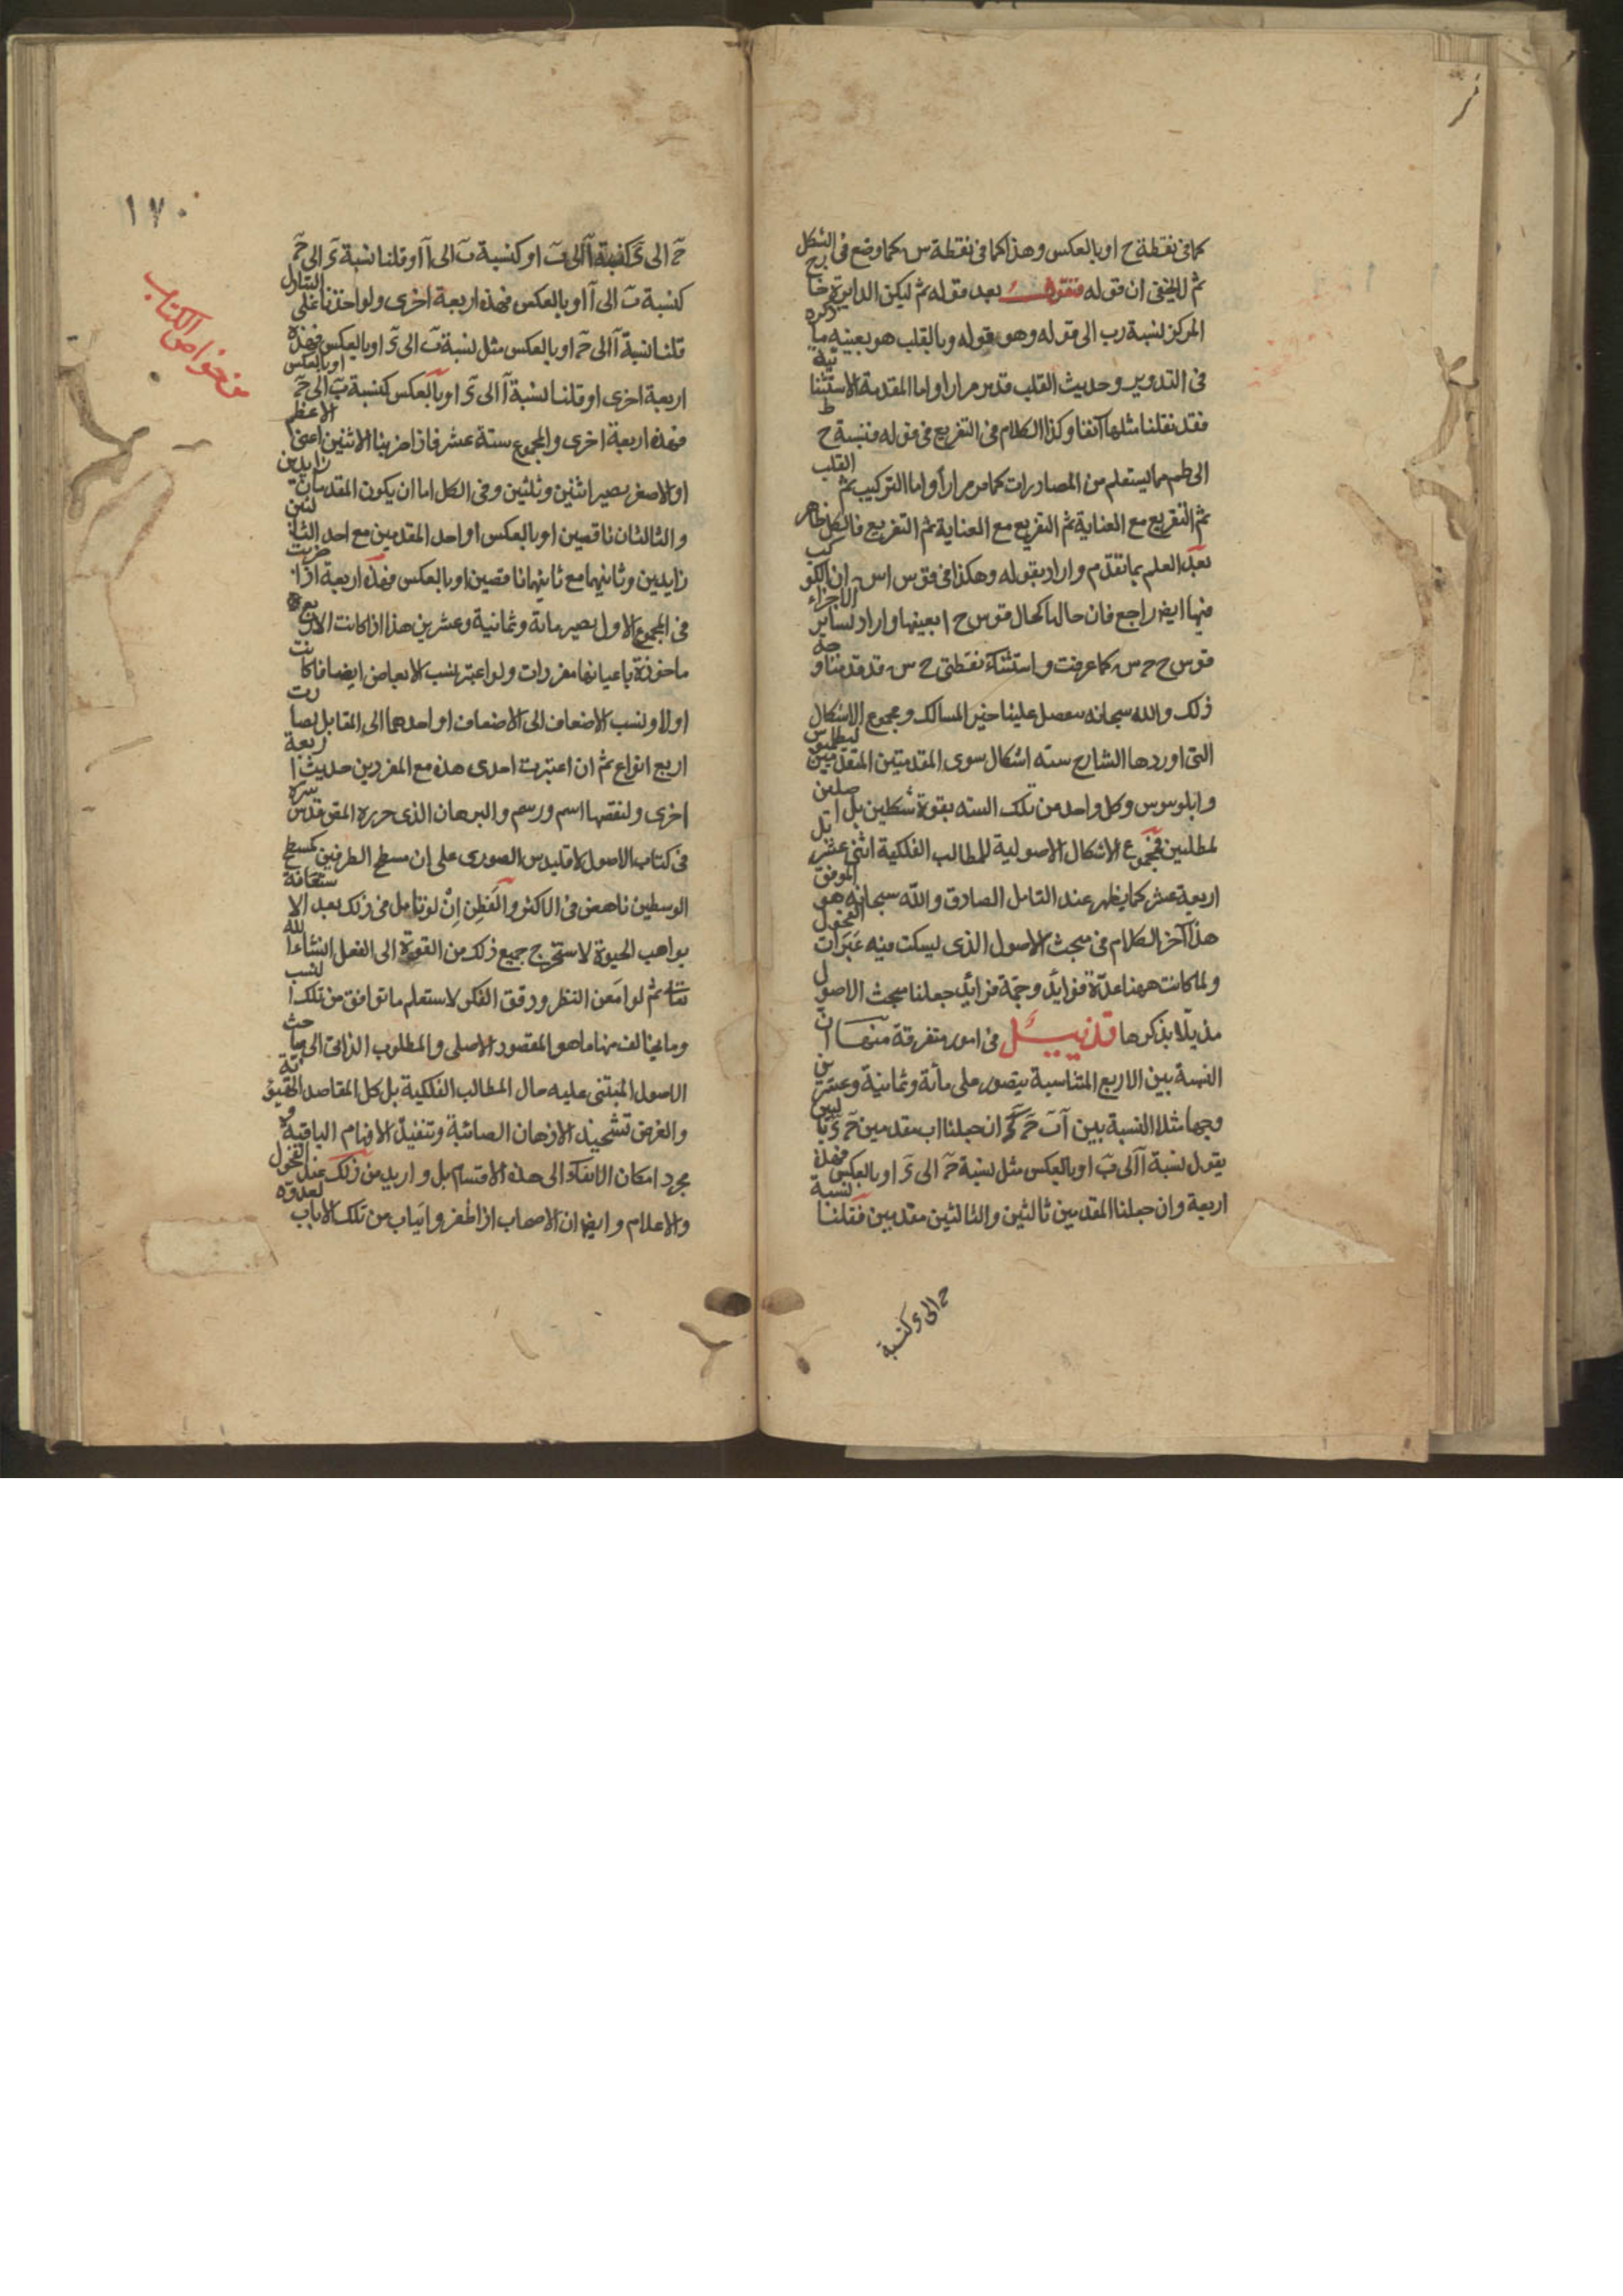 كما فى نقطة ح او بالعكس وهذا كما فى نقطة س كما وضع فى الشكل
ثم لا يخفى ان قوله فنقول بعد قوله ثم ليكن الدايرة خارج
المركز لنسبة رب الى قوله وهو قوله وبالقلب هو بعينه ما ذكره
فى التدوير وحديث القلب قد مر مرارا واما المقدمة الاستثنائية
فقد نقلنا مثلها آنفا وكذا الكلام فى التفريع فى قوله فنسبة ح ط
الى طم مما يستعلم من المصادرات كما مر مرارا واما التركيب ثم القلب
ثم التفريع مع العناية ثم التفريع مع العناية ثم التفريع فالكل ظاهر
بعد العلم بما تقدم واراد بقوله وهكذا فى قوس اس ان الكوكب
فيها ايضا راجع فان حالها كحال قوس ح ا بعينها واراد بساير الاجزاء
قوس ح ح س كما عرفت واستثناء نقطتى ح س قد قدمنا وجه
ذلك والله سبحانه علينا خير المسالك ومجموع الاشكال
التى اوردها الشارح سته اشكال سوى المقدمتين المتقدمتين لبطلميوس
وابلوسوس وكل واحد من تلك السته بقوة شكلين بل اصلين
لمطلبين فمجموع الاشكال الاصولية للمطالب الفلكية اثنى عشر بل
اربعة عشر كما يظهر عند التامل الصادق والله سبحانه هو الموفق
هذا آخر الكلام فى مبحث الاصول الذى ليسكت فيه عبرات الفحول
ولما كانت ههنا عدة فوايد وجمّة فرايد جعلنا مبحث الاصول
مذيلا بذكرها تذييل فى امور متفرقة منها ان
النسبة بين الاربع المتناسبة يتصور على مأة وثمانية وعشرين
وجها مثلا النسبة بين آ ب ح ء ان جعلنا اب مقدمين ح ء تاليين
يقول نسبة آ الى ب او بالعكس مثل نسبة ح الى ء او بالعكس فهذه
اربعة وان جعلنا المقدمين ثالثين والثالثين مقدمين فقلنا نسبة
ح الى ء كنسبة
١٧٠
من خواص الكتاب
ح الى ء كنسبة آ الى ب او كنسبة ب الى آ او قلنا نسبة ء الى ح
كنسبة ب الى آ او بالعكس فهذه اربعة اخرى ولو اخذنا على التبادل
قلنا نسبة آ الى ح او بالعكس مثل نسبة ب الى ء او بالعكس فهذه
اربعة اخرى او قلنا نسبة آ الى ء او بالعكس كنسبة ب الى ح او بالعكس
فهذه اربعة اخرى والمجموع ستة عشر فاذا ضربنا الاثنين اعنى الاعظم
او الاصغر يصير اثنين وثلثين وفى الكل اما ان يكون المقدمان زايدين
والثالثان ناقصين او بالعكس او احد المقدمين مع احد الثالثين
زايدين وثانيهما مع ثانيهما ناقصين او بالعكس فهذه اربعة اذا ضربت
فى المجموع الاول يصير مائة وثمانية وعشرين هذا اذا كانت الاربع
ماخوذة باعيانها مفردات ولو اعتبر نسب الابعاض ايضا فاكانت
اولا ونسب الاضعاف الى الاضعاف او احدهما الى المقابل بصارت
اربع انواع ثم ان اعتبرت احدى هذه مع المفردين حديث اربعة
اخرى ولنقصها اسم ورسم والبرهان الذى حرره المق قدس سره
فى كتاب الاصول لاقليدس الصورى على ان مسطح الطرفين كمسطح
الوسطين ناهض فى الاكثر والفطن اِنْ لو يتامل فى ذلك بعد الاستعانة
بواهب الحيوة لاستخرج جميع ذلك من القوة الى الفعل انشاء الله
تعالى ثم لو امعن النظر ودقق الفكر لاستعلم ما توافق من تلك النسب
وما يخالف منها ما هو المقصود الاصلى والمطلوب الذاتى الى مباحث
الاصول المبتنى عليه حال المطالب الفلكية بل كل المقاصد الحقيقية
والغرض تشحيذ الاذهان الصائبة وتنفيذ الافهام الباقية و
مجرد امكان الانفكاك الى هذه الاقسام بل واريد من ذلك عند الفحول
والاعلام وايضا ان الاصحاب اذا ظفر وانياب من تلك الابواب